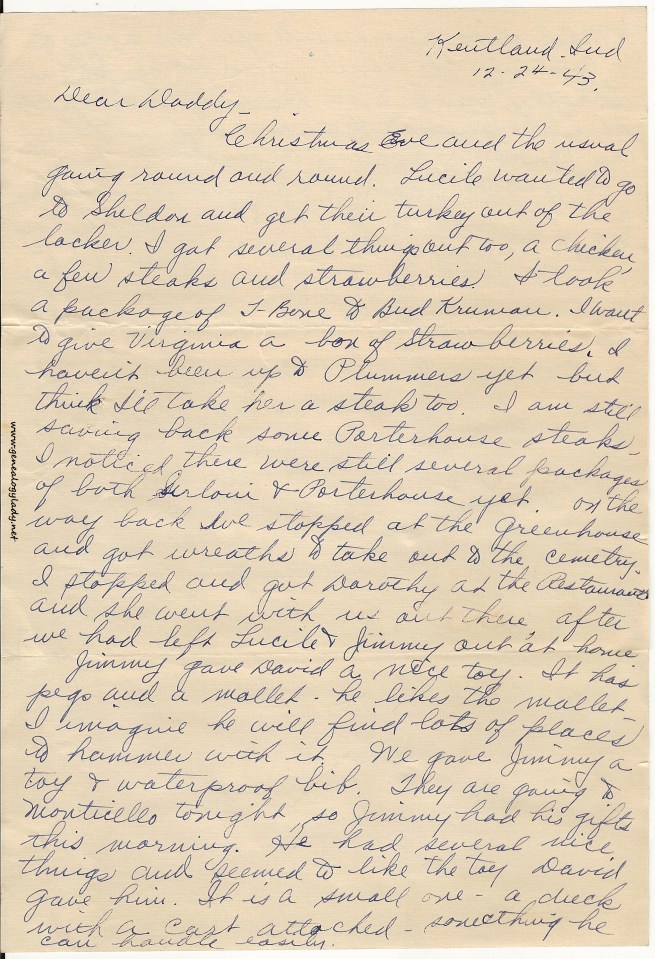 Kentland, Ind
12-24-43.
Dear Daddy_
Christmas Eve and the usual
going round and round. Lucile wanted to go
to Sheldon and get their turkey out of the
locker. I got several things out too, a chicken,
a few steaks and strawberries. I took
a package of T-Bone to Bud Kruman. I want
to give Virginia a box of strawberries. I
haven't been up to Plummers yet but
think I'll take her a steak too. I am still
saving back some Porterhouse steaks_
I noticed there were still several packages
of both Sirloin & Porterhouse yet. On the
way back we stopped at the Greenhouse
and got wreaths to take out to the cemetry.
I stopped and got Dorothy at the Restaurant
and she went with us out there, after
we had left Lucile & Jimmy out at home
Jimmy gave David a nice toy. It has
pegs and a mallet - he likes the mallet_
I imagine he will find lots of places
to hammer with it. We gave Jimmy a
toy & waterproof bib. They are going to
Monticello tonight, so Jimmy had his gifts
this morning. He had several nice
things and seemed to like the toy David
gave him. It is a small one - a duck
with a cart attached - something he
can handle easily.
www.genealogylady.net